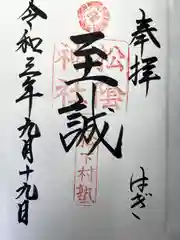 奉拝
はぎ
松陰
神社
至誠
松下村塾
令和三年九月十九日